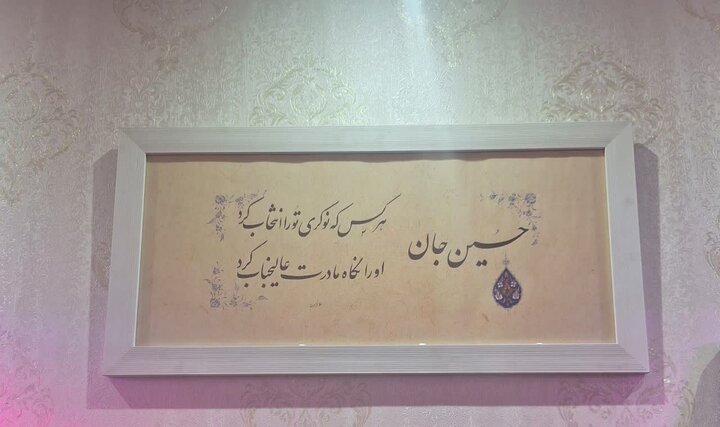 حسین جان
هرکس که نوکری تو را انتخاب کرد
او را نگاه مادرت عالیجناب کرد